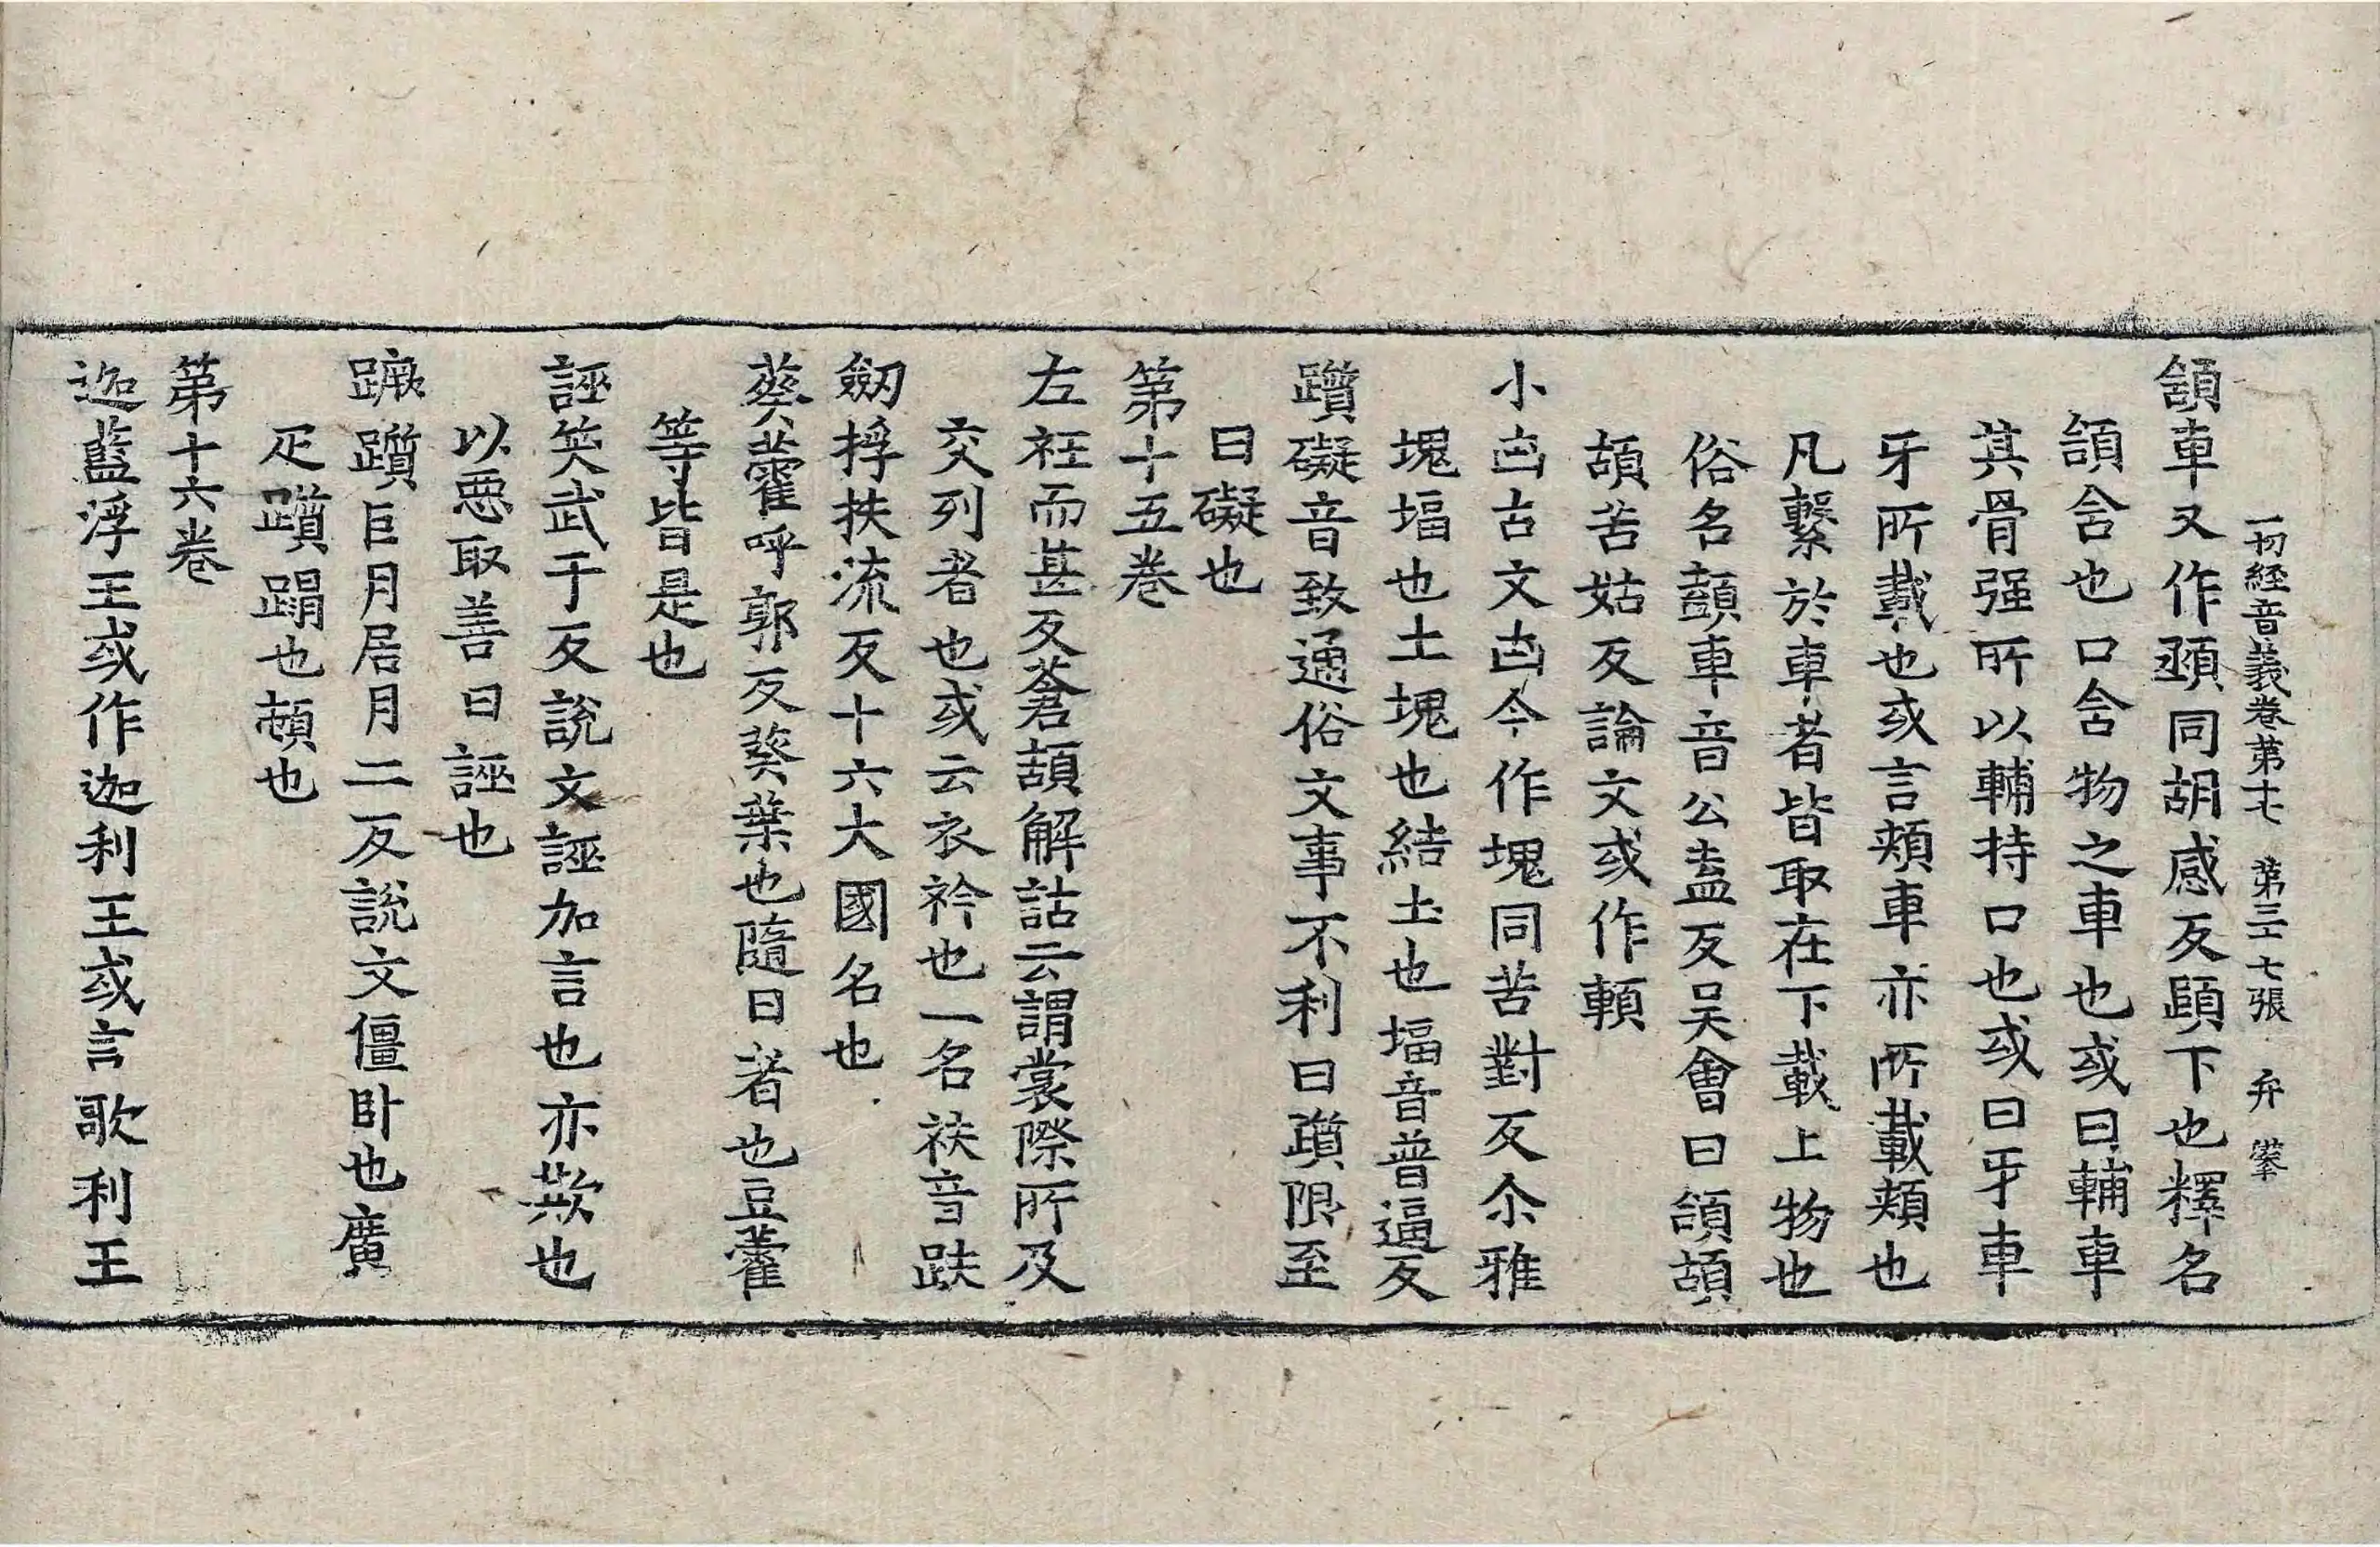 一切經音義卷第十七 第三十七張 弁 㩯
頷車又作顄同胡感反頤下也釋名
頷含也口含物之車也或曰輔車
其骨强所以輔持口也或曰牙車
牙所載也或言頰車亦所載頰也
凡繫於車者皆取在下載上物也
俗名顑車音公盍反吳會曰頷頡
頡苦姑反論文或作䫀
小凷古文凷今作塊同苦對反尒雅
塊堛也土塊也結土也堛音普逼反
躓礙音致通俗文事不利曰躓限至
曰礙也
第十五卷
左衽而甚反蒼頡解詁云謂裳際所及
交列者也或云衣衿也一名袂音趺
劒捊扶流反十六大國名也
葵藿呼郭反葵葉也隨日者也豆藿
等皆是也
誣笑武于反說文誣加言也亦欺也
以惡取善曰誣也
蹶躓巨月居月二反說文僵卧也廣
疋躓蹋也頓也
第十六卷
迦藍浮王或作迦利王或言歌利王